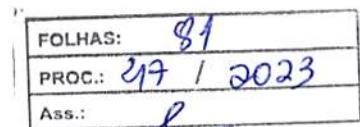 FOLHAS: 81
PROC.: 47 / 2023
Ass.: